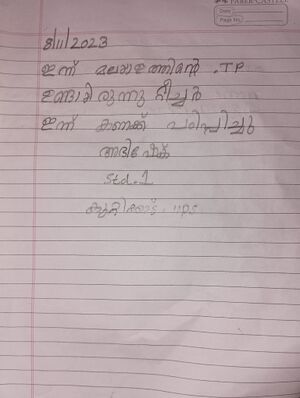 FABER-CASTELL
Date
Page No.
8/11/2023
ഇന്ന് മലയാളത്തിന്റെ .TP
ഉണ്ടായിരുന്നു ടീച്ചർ
ഇന്ന് കണക്ക് പഠിപ്പിച്ചു
അഭിഷേക്
Std.1
ups